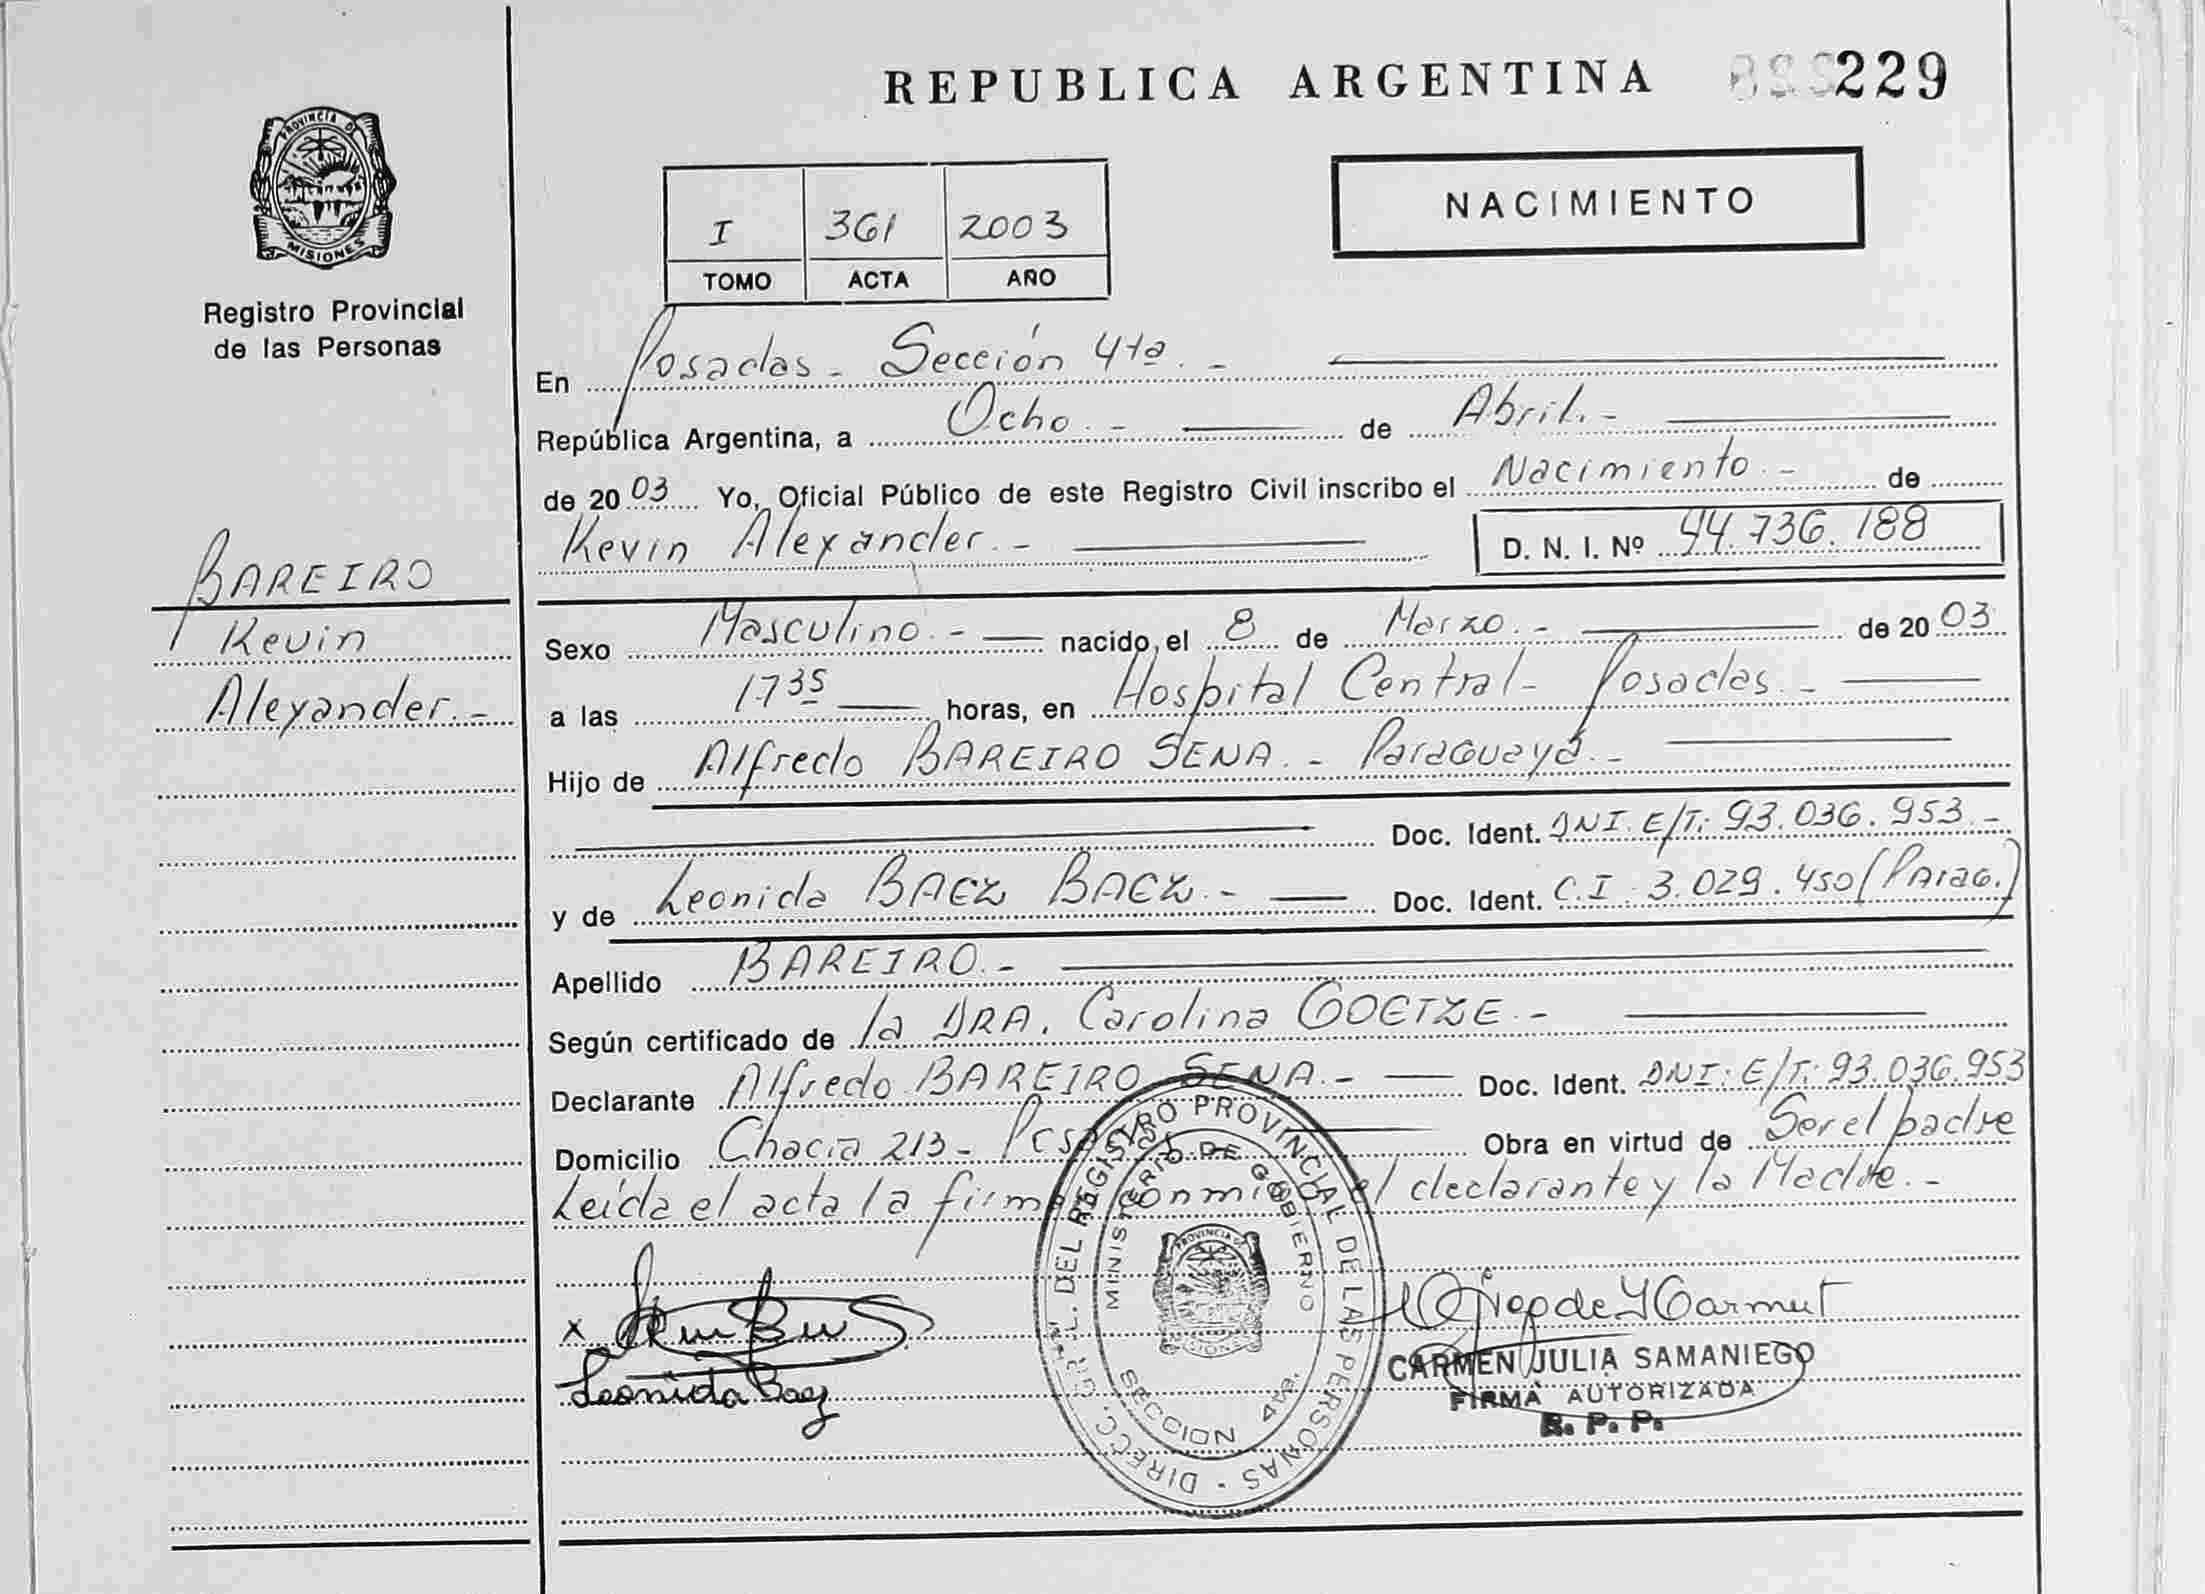 REPUBLICA ARGENTINA 229
PROVINCIA DE
MISIONES
Registro Provincial
de las Personas
NACIMIENTO
I 361 2003
TOMO ACTA AÑO
En Posadas - Sección 4ta. -
República Argentina, a Ocho. - de Abril. -
de 2003 Yo, Oficial Público de este Registro Civil inscribo el Nacimiento. - de
Kevin Alexander. - D. N. I. Nº 44.736.188
BAREIRO
Kevin
Alexander. -
Sexo Masculino. - nacido, el 8 de Marzo. - de 2003
a las 1735 horas, en Hospital Central - Posadas. -
Hijo de Alfredo BAREIRO SENA. - Paraguaya. -
Doc. Ident. DNI. E/T: 93.036.953 -
y de Leonida BAEZ BAEZ. - Doc. Ident. C.I. 3.029.450 (Parag.)
Apellido BAREIRO. -
Según certificado de la DRA. Carolina GOETZE. -
Declarante Alfredo BAREIRO SENA. - Doc. Ident. DNI: E/T: 93.036.953
Domicilio Chacra 213 - Obra en virtud de Ser el padre
Leída el acta la firma conmigo el declarante y la Madre. -
x
Leonida Baez
DIRECC. GRAL. DEL REGISTRO PROVINCIAL DE LAS PERSONAS
MINISTERIO DE GOBIERNO
SECCION 4ta.
PROVINCIA DE
MISIONES
CARMEN JULIA SAMANIEGO
FIRMA AUTORIZADA
R. P. P.